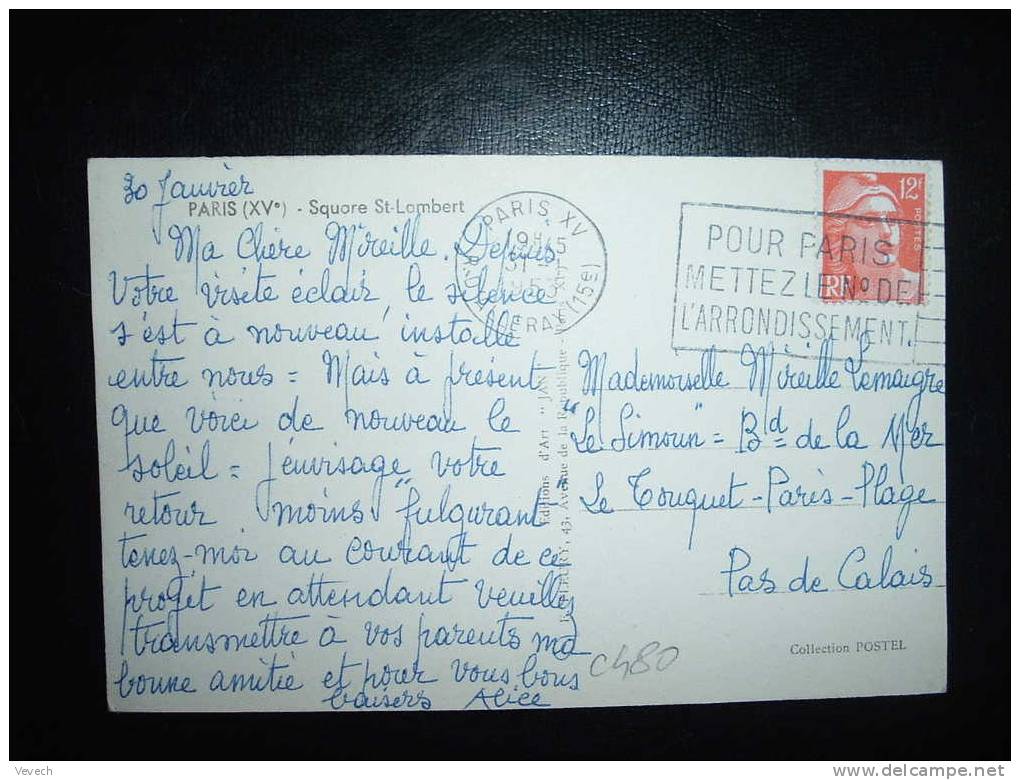 30 Janvier
PARIS (XVe) - Square St-Lambert
Ma Chère Mireille. Depuis
Votre visite éclair, le silence
s'est à nouveau installé
entre nous = Mais à présent
que voici de nouveau le
soleil = j'envisage votre
retour moins "fulgurant"
tenez-moi au courant de ce
projet en attendant veuillez
transmettre à vos parents ma
bonne amitié et pour vous bons
baisers Alice
PARIS XV
(15e)
POUR PARIS
METTEZ LE No DE
L'ARRONDISSEMENT.
12F
POSTES
RF
Mademoiselle Mireille Lemaigre
"Le Simoun" = Bd de la Mer
Le Touquet-Paris-Plage
Pas de Calais
Editions d'Art "JAN"
43, Avenue de la République
Collection POSTEL
c480
Vevech
delcampe.net